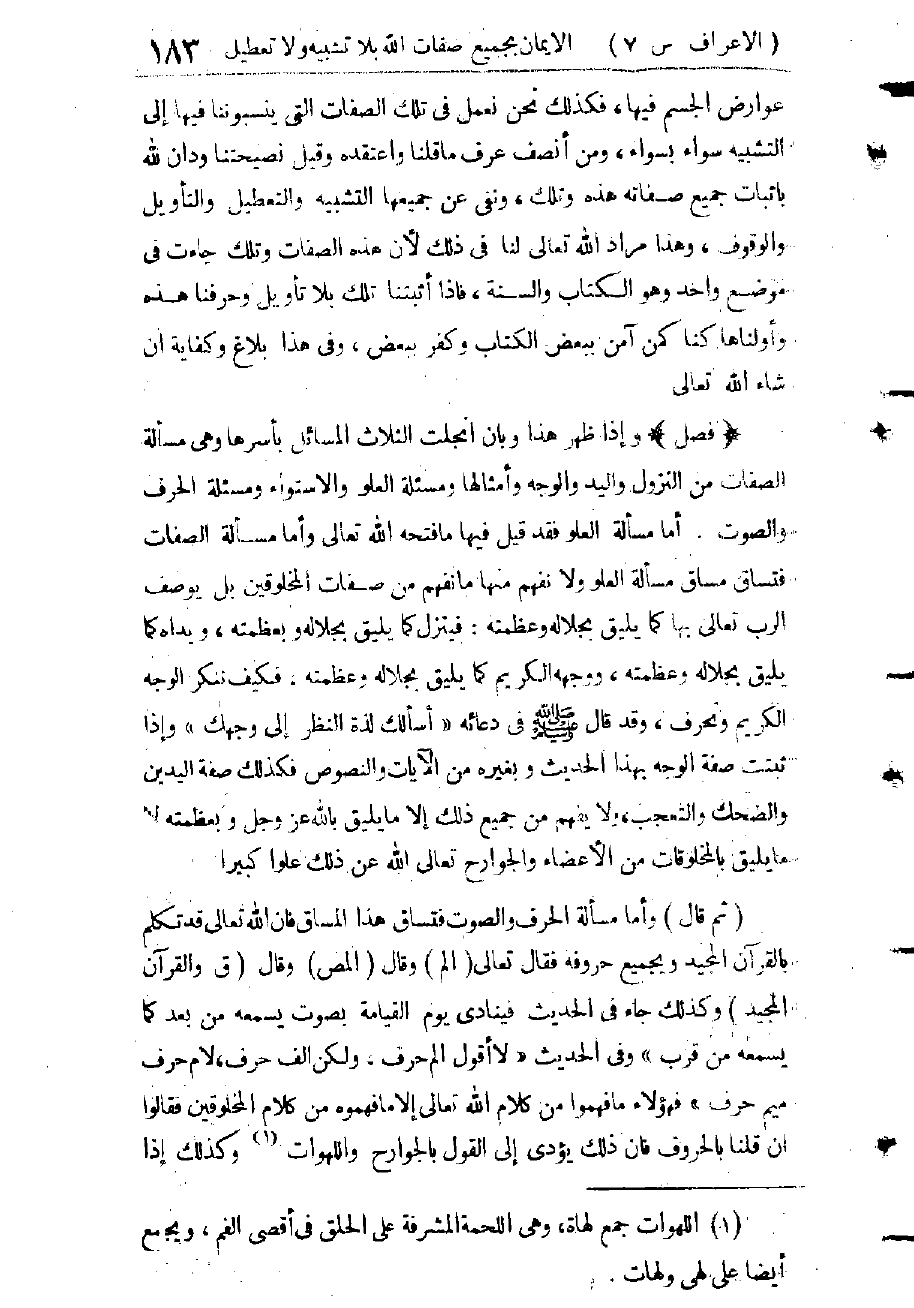 ( الاعراف س ٧ ) الايمان بجميع صفات الله بلا تشبيه ولا تعطيل ١٨٣
عوارض الجسم فيها، فكذلك نحن نعمل فى تلك الصفات التى ينسبوننا فيها إلى
التشبيه سواء بسواء ، ومن أنصف عرف ماقلنا واعتقده وقبل نصيحتنا ودان لله
باثبات جميع صفاته هذه وتلك ، ونفى عن جميعها التشبيه والتعطيل والتأويل
والوقوف ، وهذا مراد الله تعالى لنا فى ذلك لأن هذه الصفات وتلك جاءت فى
موضع واحد وهو الكتاب والسنة ، فاذا أثبتنا تلك بلا تأويل وحرفنا هذه
وأولناها كنا كمن آمن ببعض الكتاب وكفر ببعض ، وفى هذا بلاغ وكفاية ان
شاء الله تعالى
﴿ فصل ﴾ وإذا ظهر هذا وبان انجلت الثلاث المسائل بأسرها وهى مسألة
الصفات من النزول واليد والوجه وأمثالها ومسئلة العلو والاستواء ومسئلة الحرف
والصوت . أما مسألة العلو فقد قيل فيها مافتحه الله تعالى وأما مسألة الصفات
فتساق مساق مسألة العلو ولا نفهم منها مانفهم من صفات المخلوقين بل يوصف
الرب تعالى بها كما يليق بجلاله وعظمته : فينزل كما يليق بجلاله و بعظمته ، ويداه كما
يليق بجلاله وعظمته ، ووجهه الكريم كما يليق بجلاله وعظمته . فكيف ننكر الوجه
الكريم ونحرف ، وقد قال ﷺ فى دعائه « أسألك لذة النظر إلى وجهك » وإذا
ثبتت صفة الوجه بهذا الحديث و بغيره من الآيات والنصوص فكذلك صفة اليدين
والضحك والتعجب، ولا يفهم من جميع ذلك إلا مايليق بالله عز وجل و بعظمته لا
مايليق بالمخلوقات من الأعضاء والجوارح تعالى الله عن ذلك علوا كبيرا
( ثم قال ) وأما مسألة الحرف والصوت فتساق هذا المساق فان الله تعالى قد تكلم
بالقرآن المجيد وبجميع حروفه فقال تعالى ( الم ) وقال ( المص ) وقال ( ق والقرآن
المجيد ) وكذلك جاء فى الحديث فينادى يوم القيامة بصوت يسمعه من بعد كما
يسمعه من قرب » وفى الحديث « لا أقول الم حرف . ولكن الف حرف ، لام حرف
ميم حرف » فهؤلاء مافهموا من كلام الله تعالى إلا مافهموه من كلام المخلوقين فقالوا
ان قلنا بالحروف فان ذلك يؤدى إلى القول بالجوارح واللهوات (١) وكذلك إذا
(١) اللهوات جمع لهاة، وهى اللحمة المشرفة على الحلق فى أقصى الفم ، ويجمع
أيضا على لهى ولهات .